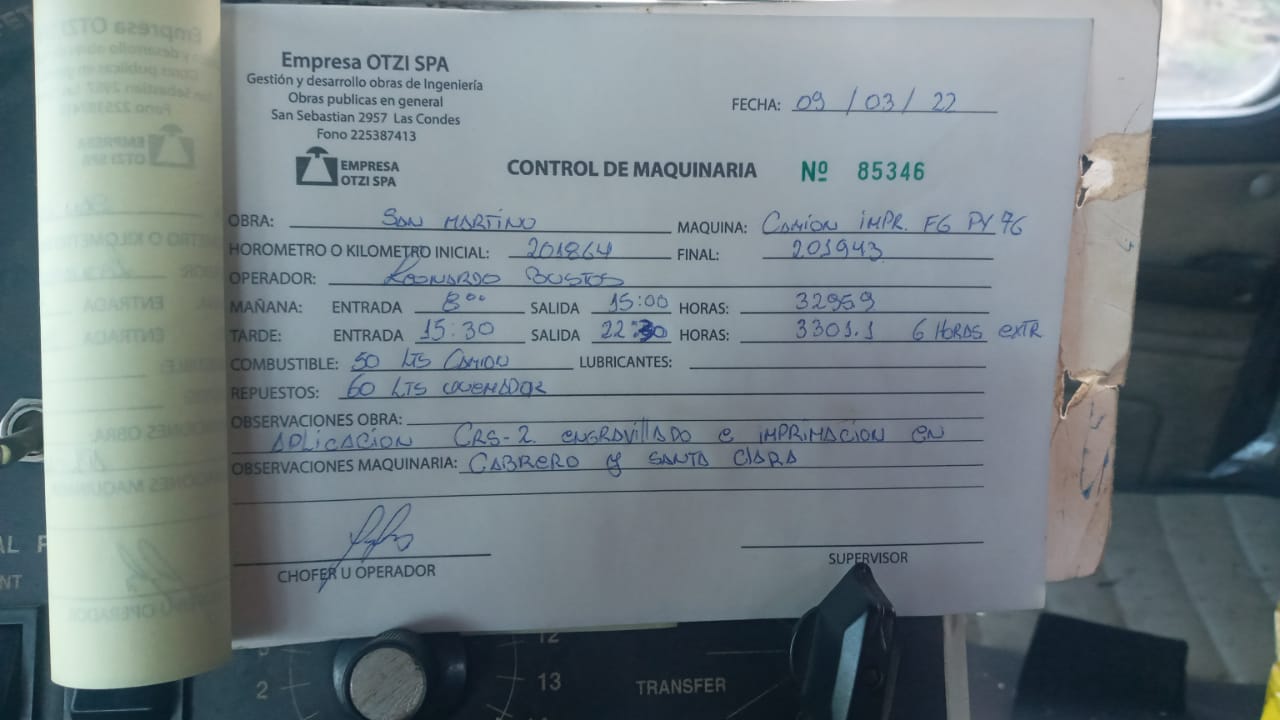 Empresa OTZI SPA
Gestión y desarrollo obras de Ingeniería
Obras publicas en general
San Sebastian 2957 Las Condes
Fono 225387413
EMPRESA
OTZI SPA
FECHA: 09 / 03 / 22
CONTROL DE MAQUINARIA Nº 85346
OBRA: SAN MARTINO MAQUINA: CAMION IMPR. FG PY 76
HOROMETRO O KILOMETRO INICIAL: 201864 FINAL: 201943
OPERADOR: LEONARDO BUSTOS
MAÑANA: ENTRADA 8:00 SALIDA 15:00 HORAS: 3295.9
TARDE: ENTRADA 15:30 SALIDA 22:30 HORAS: 3301.1 6 HORAS EXTR
COMBUSTIBLE: 50 LTS CAMION LUBRICANTES:
REPUESTOS: 60 LTS QUEMADOR
OBSERVACIONES OBRA:
APLICACION CRS-2 ENGRAVILLADO E IMPRIMACION EN
OBSERVACIONES MAQUINARIA: CABRERO Y SANTA CLARA
CHOFER U OPERADOR
SUPERVISOR
2
12
13
TRANSFER